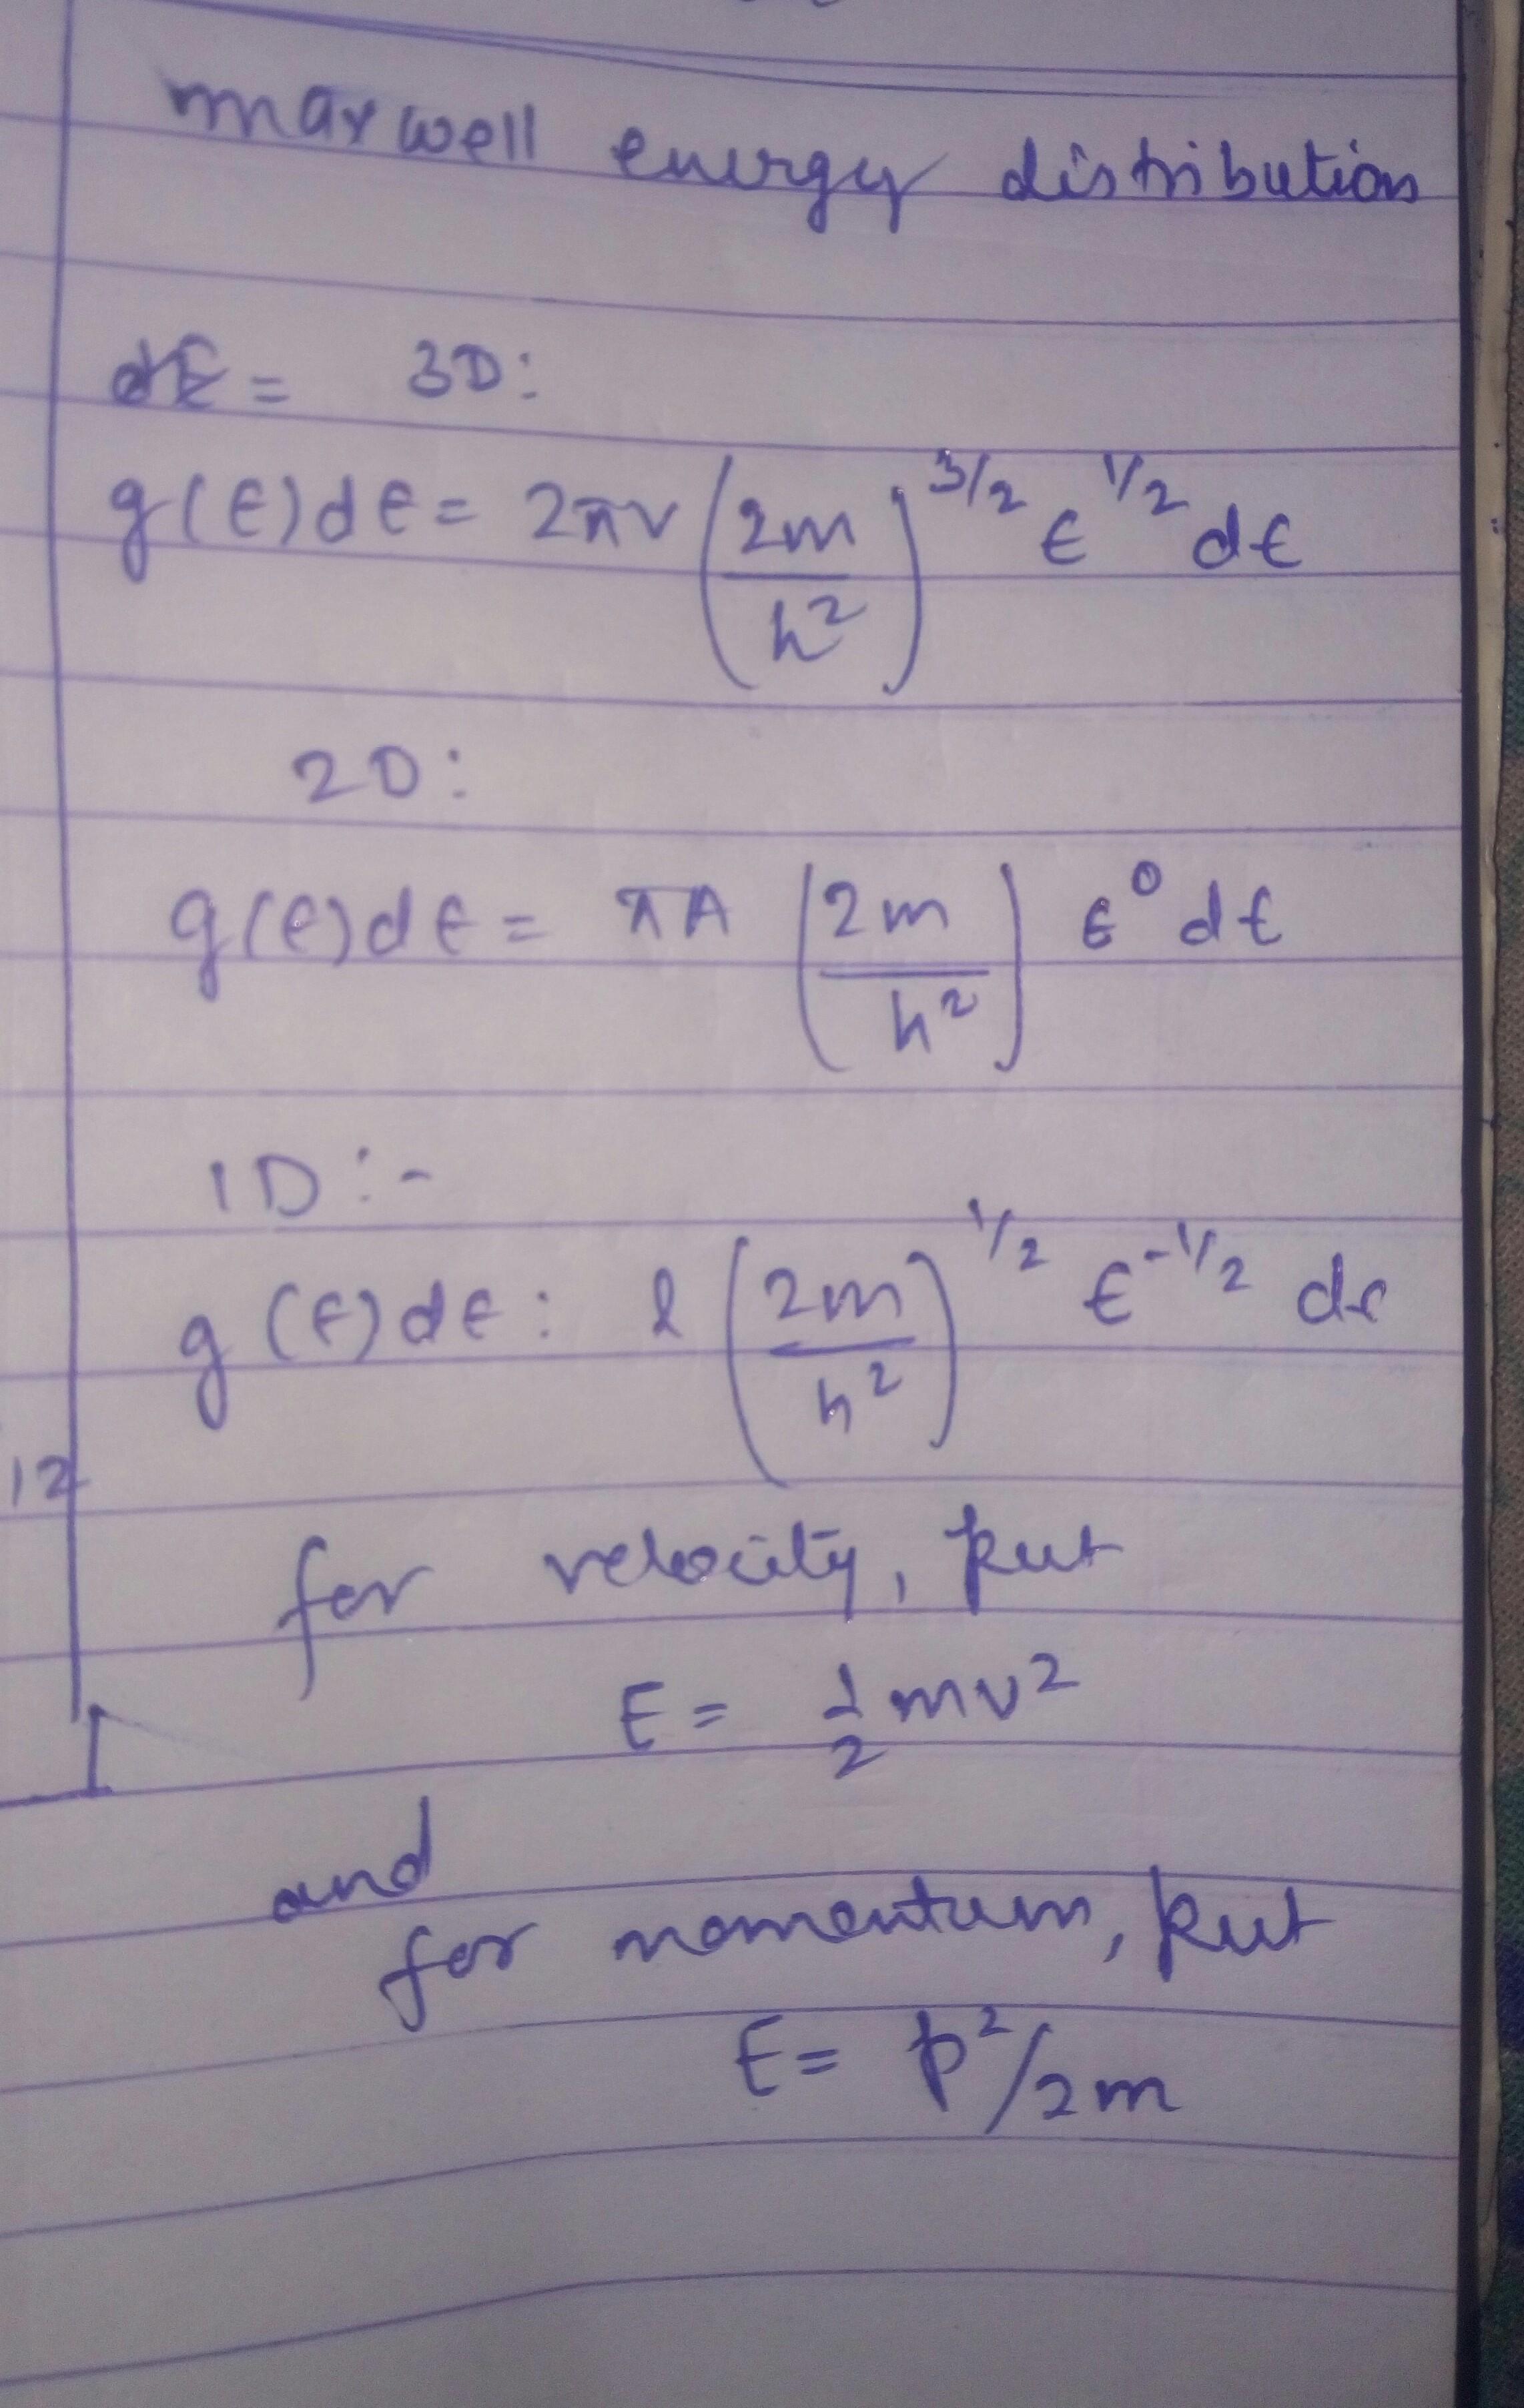 maxwell energy distribution
dE = 3D:
g(ε)dε = 2πv (2m/h²)^3/2 ε^1/2 dε
2D:
g(ε)dε = πA (2m/h²) ε⁰ dε
1D :-
g(ε)dε : l (2m/h²)^1/2 ε^-1/2 dε
12
for velocity, put
E = 1/2 mv²
and
for momentum, put
E = p²/2m